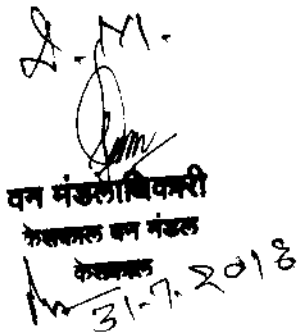 D. M.
वन मंडलाधिकारी
केशकाल वन मंडल
केशकाल
31.7.2018